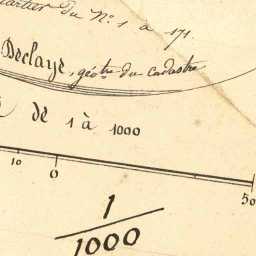 Quartier du N.º 1 à 171.
Declaye, géotre du cadastre
de 1 à 1000
10 0 50
1/1000